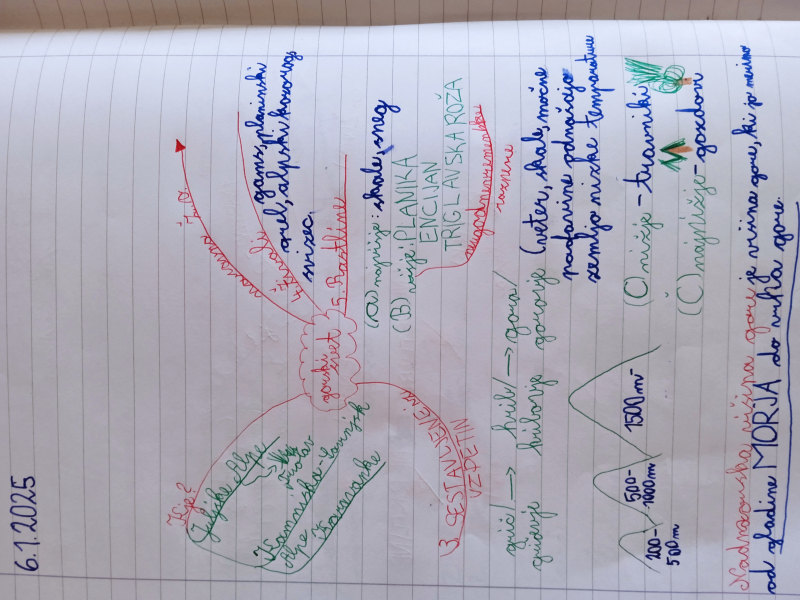 6.1.2025
Kje?
Julijske Alpe
Kamniško-Savinjske
Alpe
Karavanke
gorski
svet
naravna
4. živali
gams, planinski
orel, alpski kozorog,
svizec.
5. Rastline
(a) najvišje: skale, sneg
(B) višje: PLANIKA
ENCIJAN
TRIGLAVSKA ROŽA
neugodne vremenske
razmere
(veter, skale, močne
padavine odnašajo
zemljo nizke temperature
(C) nižje - travniki
(C) najnižje - gozdovi
3. SESTAVLJENE IZ
VZPETIN
grič/ → hrib/ → gora/
gričevje hribovje gorovje
200-
500 m
500-
1000 m
1500 m
Nadmorska višina gore je višina gore, ki jo merimo
od gladine MORJA do vrha gore.